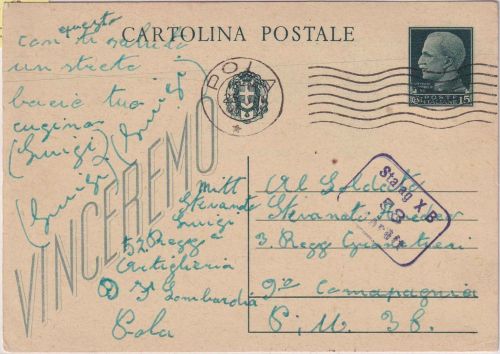 CARTOLINA POSTALE
questo
con ti saluto
un streto
bacie tuo
cugino
(Luigi)
Luigi
Luigi
VINCEREMO
POLA
15
Stalag X B
83
Geprüft
Mitt
Stevanato
Luigi
52 Regg
Artiglieria
Lombardia
Pola
Al Soldato
Stevanato
3. Regg Granatieri
9ª Comapagnia
P. M. 38.